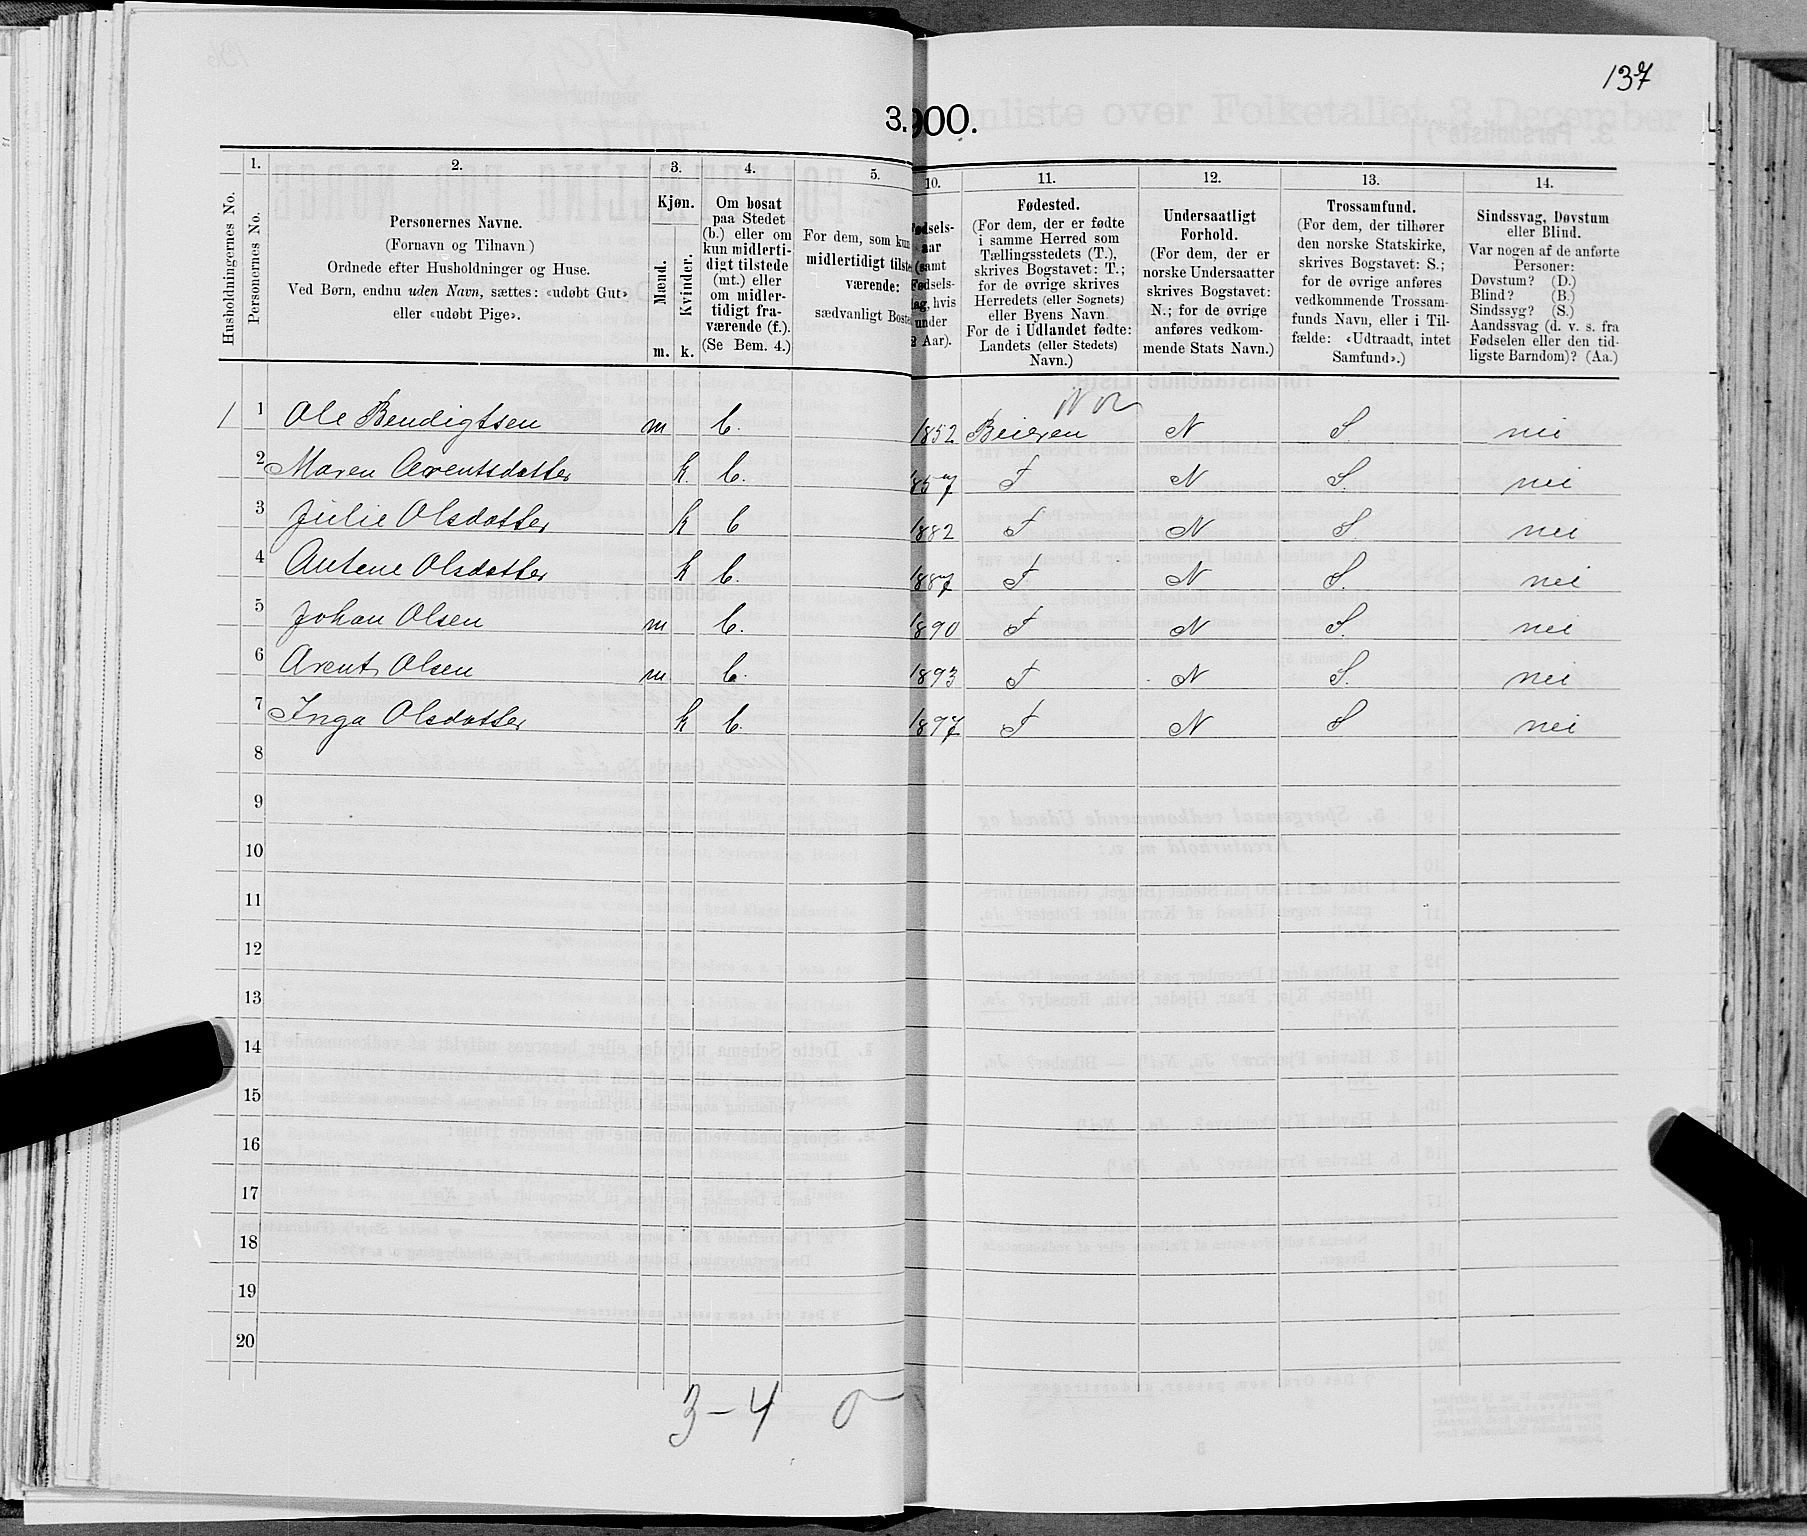 137
3. 900.
Husholdningernes No.
1.
Personernes No.
2.
Personernes Navne.
(Fornavn og Tilnavn)
Ordnede efter Husholdninger og Huse.
Ved Børn, endnu uden Navn, sættes: «udøbt Gut»
eller «udøbt Pige».
3.
Kjøn.
Mænd.
Kvinder.
m. k.
4.
Om bosat
paa Stedet
(b.) eller om
kun midlerti-
digt tilstede
(mt.) eller
om midler-
tidigt fra-
værende (f.).
(Se Bem. 4.)
5.
For dem, som kun
midlertidigt tilste
værende:
sædvanligt Boste
10.
ødsels-
aar
(samt
Fødsels-
ag, hvis
under
2 Aar).
11.
Fødested.
(For dem, der er fødte
i samme Herred som
Tællingsstedets (T.),
skrives Bogstavet: T.;
for de øvrige skrives
Herredets (eller Sognets)
eller Byens Navn.
For de i Udlandet fødte:
Landets (eller Stedets)
Navn.)
12.
Undersaatligt
Forhold.
(For dem, der er
norske Undersaatter
skrives Bogstavet:
N.; for de øvrige
anføres vedkom-
mende Stats Navn.)
13.
Trossamfund.
(For dem, der tilhører
den norske Statskirke,
skrives Bogstavet: S.;
for de øvrige anføres
vedkommende Trossam-
funds Navn, eller i Til-
fælde: «Udtraadt, intet
Samfund».)
14.
Sindssvag, Døvstum
eller Blind.
Var nogen af de anførte
Personer:
Døvstum? (D.)
Blind? (B.)
Sindssyg? (S.)
Aandssvag (d. v. s. fra
Fødselen eller den tid-
ligste Barndom)? (Aa.)
1 1 Ole Bendigtsen m b. 1852 Beieren N S. nei
2 Maren Arentsdatter k. b. 1857 T N S. nei
3 Julie Olsdatter k b 1882 T N S. nei
4 Antene Olsdatter k b. 1887 T N S. nei
5 Johan Olsen m b. 1890 T N S. nei
6 Arent Olsen m b. 1893 T N S. nei
7 Inga Olsdatter k b. 1897 T N S nei
8
9
10
11
12
13
14
15
16
17
18
19
20
3 – 4 0